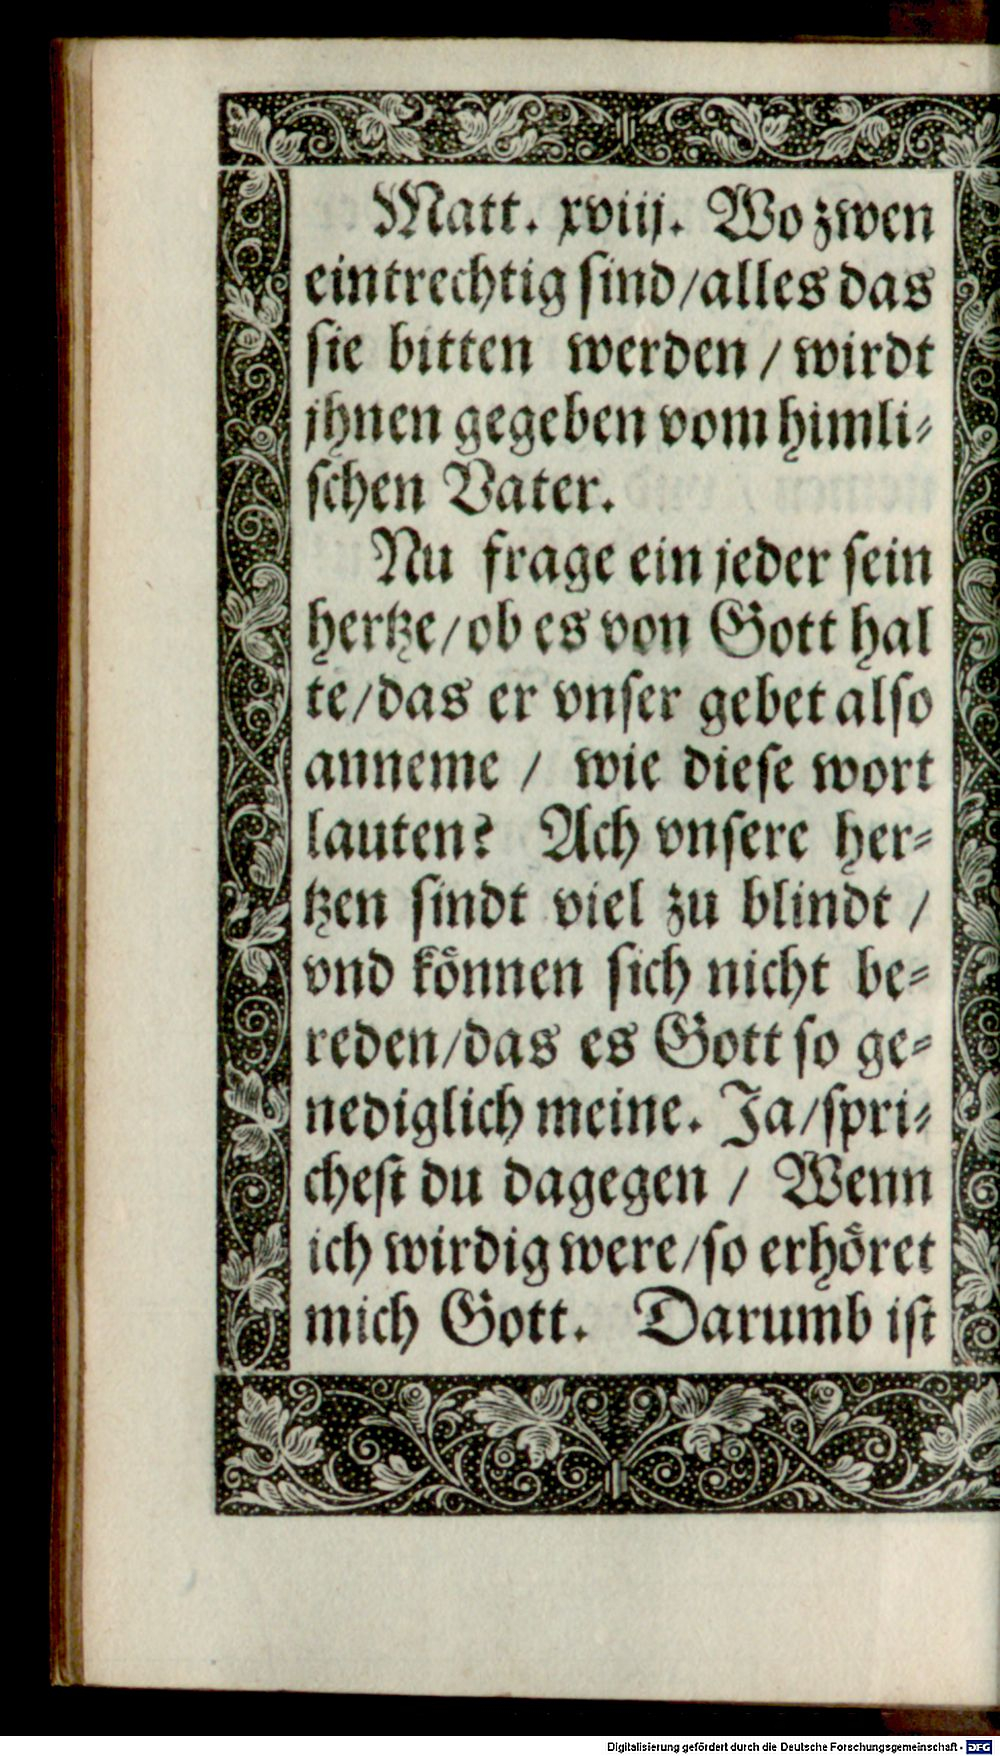 Matt. xviij. Wo zwen
eintrechtig sind/alles das
sie bitten werden / wirdt
jhnen gegeben vom himli⸗
schen Vater.
Nu frage ein jeder sein
hertze/ob es von Gott hal
te/das er vnser gebet also
anneme / wie diese wort
lauten? Ach vnsere her⸗
tzen sindt viel zu blindt /
vnd können sich nicht be⸗
reden/das es Gott so ge⸗
nediglich meine. Ja/spri⸗
chest du dagegen / Wenn
ich wirdig were/so erhöret
mich Gott. Darumb ist
Digitalisierung gefördert durch die Deutsche Forschungsgemeinschaft - DFG